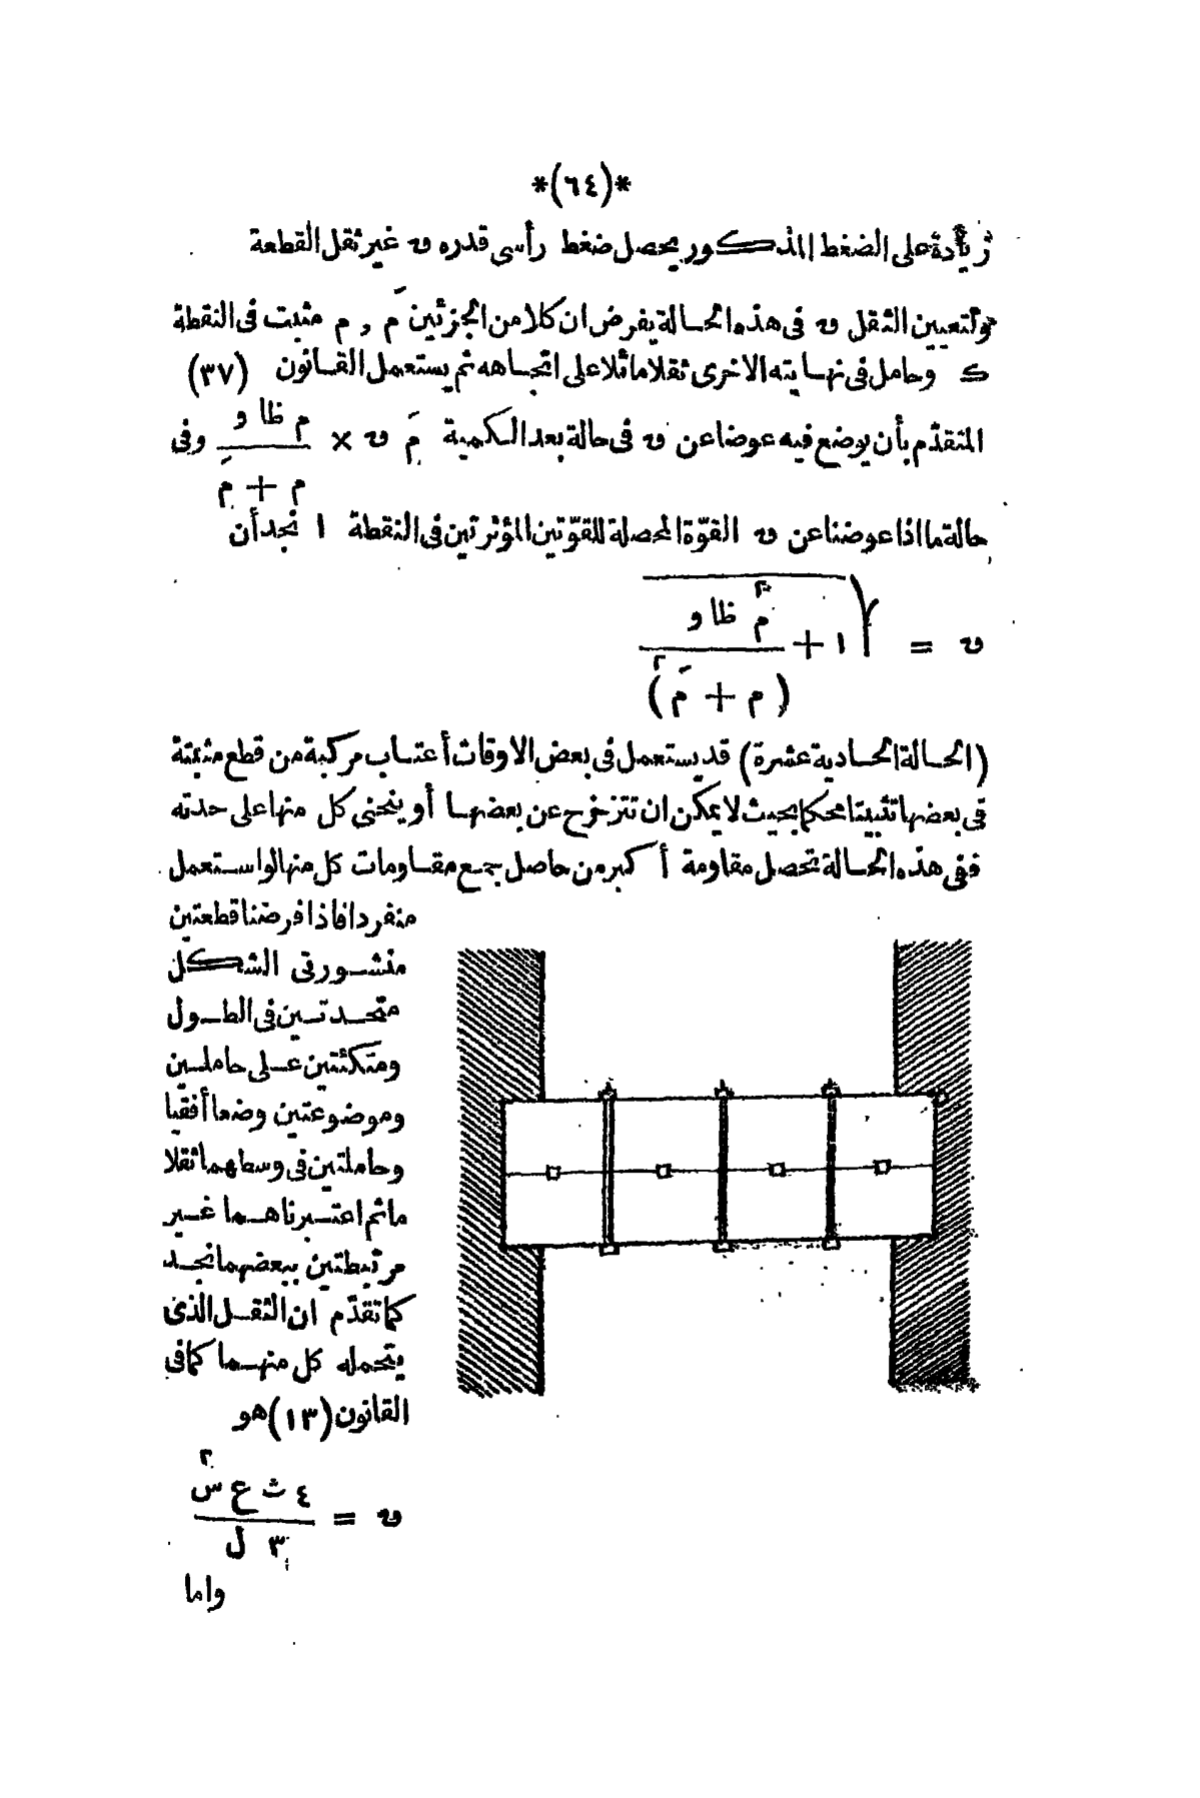 *(٦٤)*
زيادة على الضغط المذكور يحصل ضغط رأسى قدره ں غير ثقل القطعة
ولتعيين الثقل ں فى هذه الحالة يفرض ان كلا من الجزئين مَ , م مثبت فى النقطة
ك وحامل فى نهايته الاخرى ثقلا مائلا على اتجاهه ثم يستعمل القانون (٣٧)
المتقدّم بأن يوضع فيه عوضا عن ں فى حالة بعد الكمية مَ ں × م ظا و / م + مَ وفى
حالة ما اذا عوضنا عن ں القوّة المحصلة للقوّتين المؤثرتين فى النقطة ا نجد أن
ں = √ ١ + م٢ ظا و / (م + مَ)٢
(الحالة الحادية عشرة) قد يستعمل فى بعض الاوقات أعتاب مركبة من قطع مثبتة
فى بعضها تثبيتا محكما بحيث لا يمكن ان تتزحزح عن بعضها أو ينحنى كل منها على حدته
ففى هذه الحالة تحصل مقاومة أكبر من حاصل جمع مقاومات كل منها لو استعمل
منفردا فاذا فرضنا قطعتين
منشورتى الشكل
متحدتين فى الطول
ومتكئتين على حاملين
وموضوعتين وضعا أفقيا
وحاملتين فى وسطهما ثقلا
ما ثم اعتبرناهما غير
مرتبطتين ببعضهما نجد
كما تقدّم ان الثقل الذى
يتحمله كل منهما كما فى
القانون (١٣) هو
ں = ٤ ث ع س٢ / ٣ ل
واما